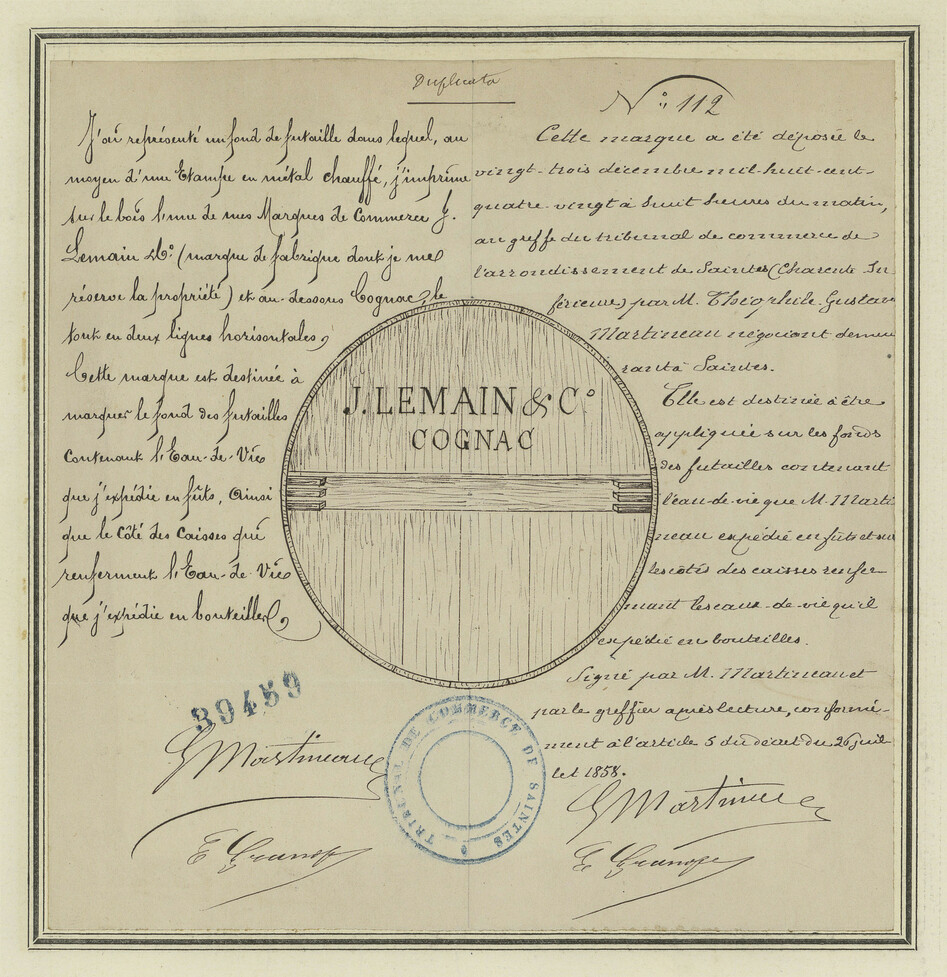 Duplicata
J'ai représenté un fond de futaille dans lequel, au
moyen d'une Etampe en métal chauffé, j'imprime
sur le bois l'une de mes Marques de Commerce J.
Lemain & Cº. (marque de fabrique dont je me
réserve la propriété) et au-dessous Cognac, le
tout en deux lignes horisontales,
Cette marque est destinée à
marquer le fond des futailles
contenant l'Eau-de-Vie
que j'expédie en fûts, Ainsi
que le Côté des Caisses qui
renferment l'Eau-de-Vie
que j'expédie en bouteilles,
39459
G Martineau
Nº: 112
Cette marque a été déposée le
vingt-trois décembre mil-huit-cent-
quatre-vingt à huit heures du matin,
au greffe du tribunal de commerce de
l'arrondissement de Saintes (Charente In-
férieure) par M. Théophile-Gustave
Martineau négociant demeu
rant à Saintes.
Elle est destinée à être
appliquée sur les fonds
des futailles contenant
l'eau-de-vie que M. Marti
neau expédie en fûts et sur
les côtés des caisses renfer-
mant les eaux-de-vie qu'il
expédie en bouteilles.
Signé par M. Martineau et
par le greffier après lecture, conformé-
ment à l'article 5 du décret du 26 juil
let 1858.
G Martineau
J. LEMAIN & Cº
COGNAC
TRIBUNAL DE COMMERCE DE SAINTES